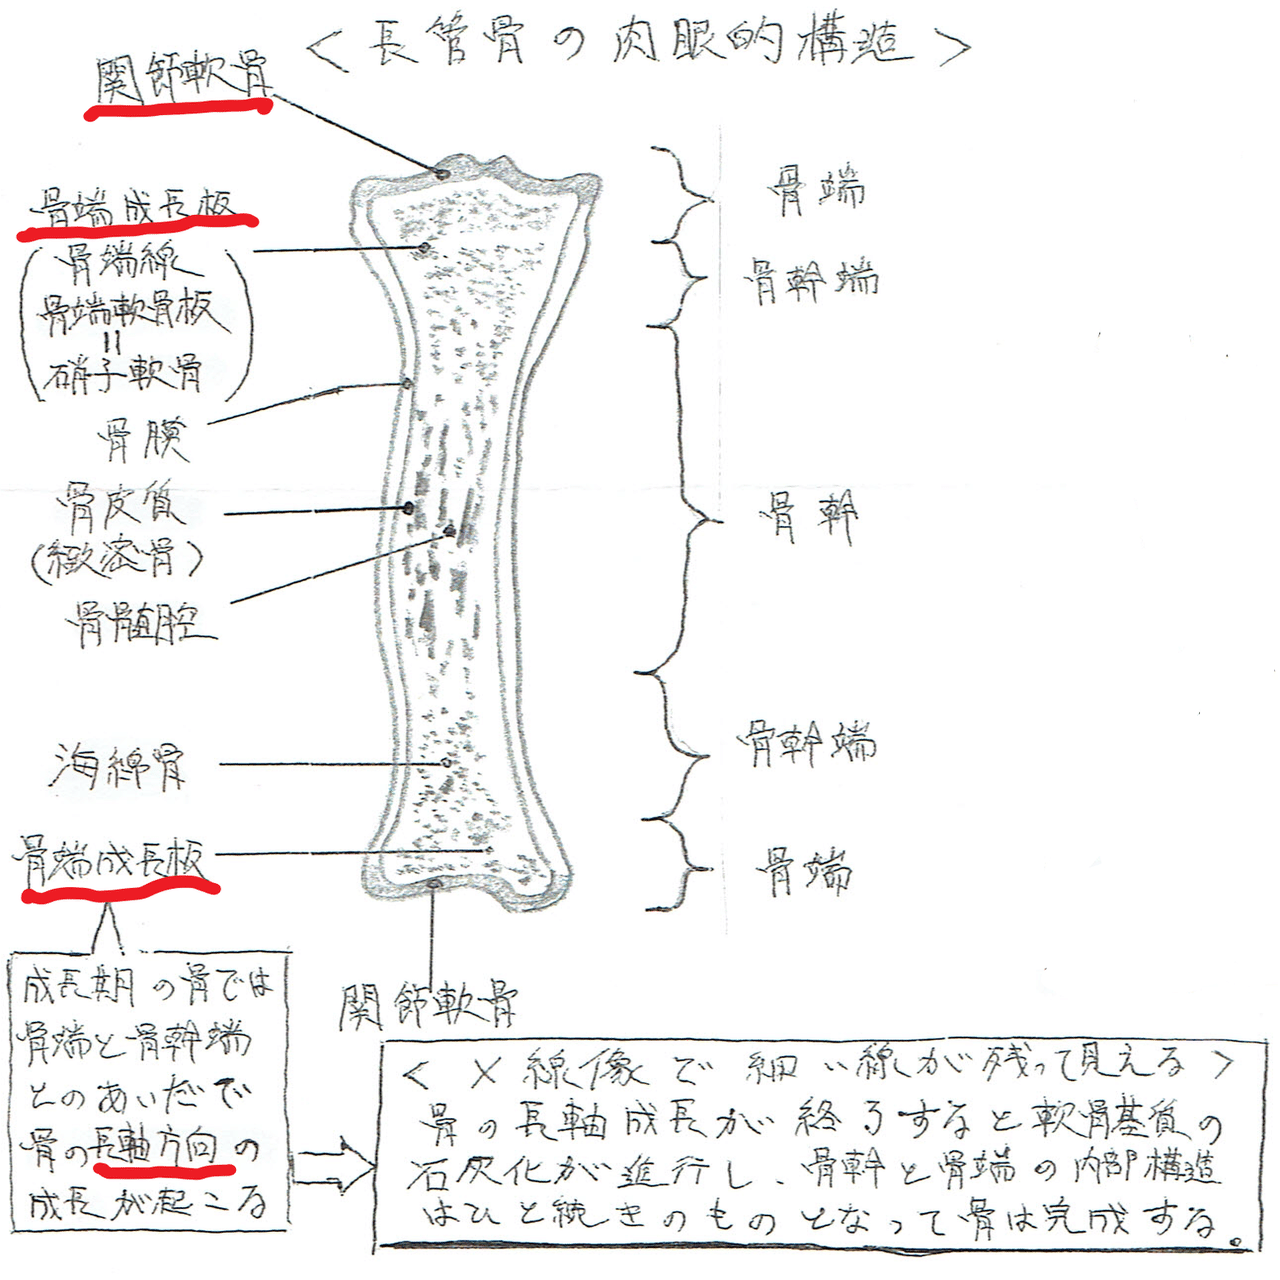 <長管骨の肉眼的構造>
関節軟骨
骨端成長板
(骨端線
骨端軟骨板
=
硝子軟骨)
骨膜
骨皮質
(緻密骨)
骨髄腔
海綿骨
骨端成長板
関節軟骨
骨端
骨幹端
骨幹
骨幹端
骨端
成長期の骨では
骨端と骨幹端
とのあいだで
骨の長軸方向の
成長が起こる
<X線像で細い線が残って見える>
骨の長軸成長が終了すると軟骨基質の
石灰化が進行し、骨幹と骨端の内部構造
はひと続きのものとなって骨は完成する。